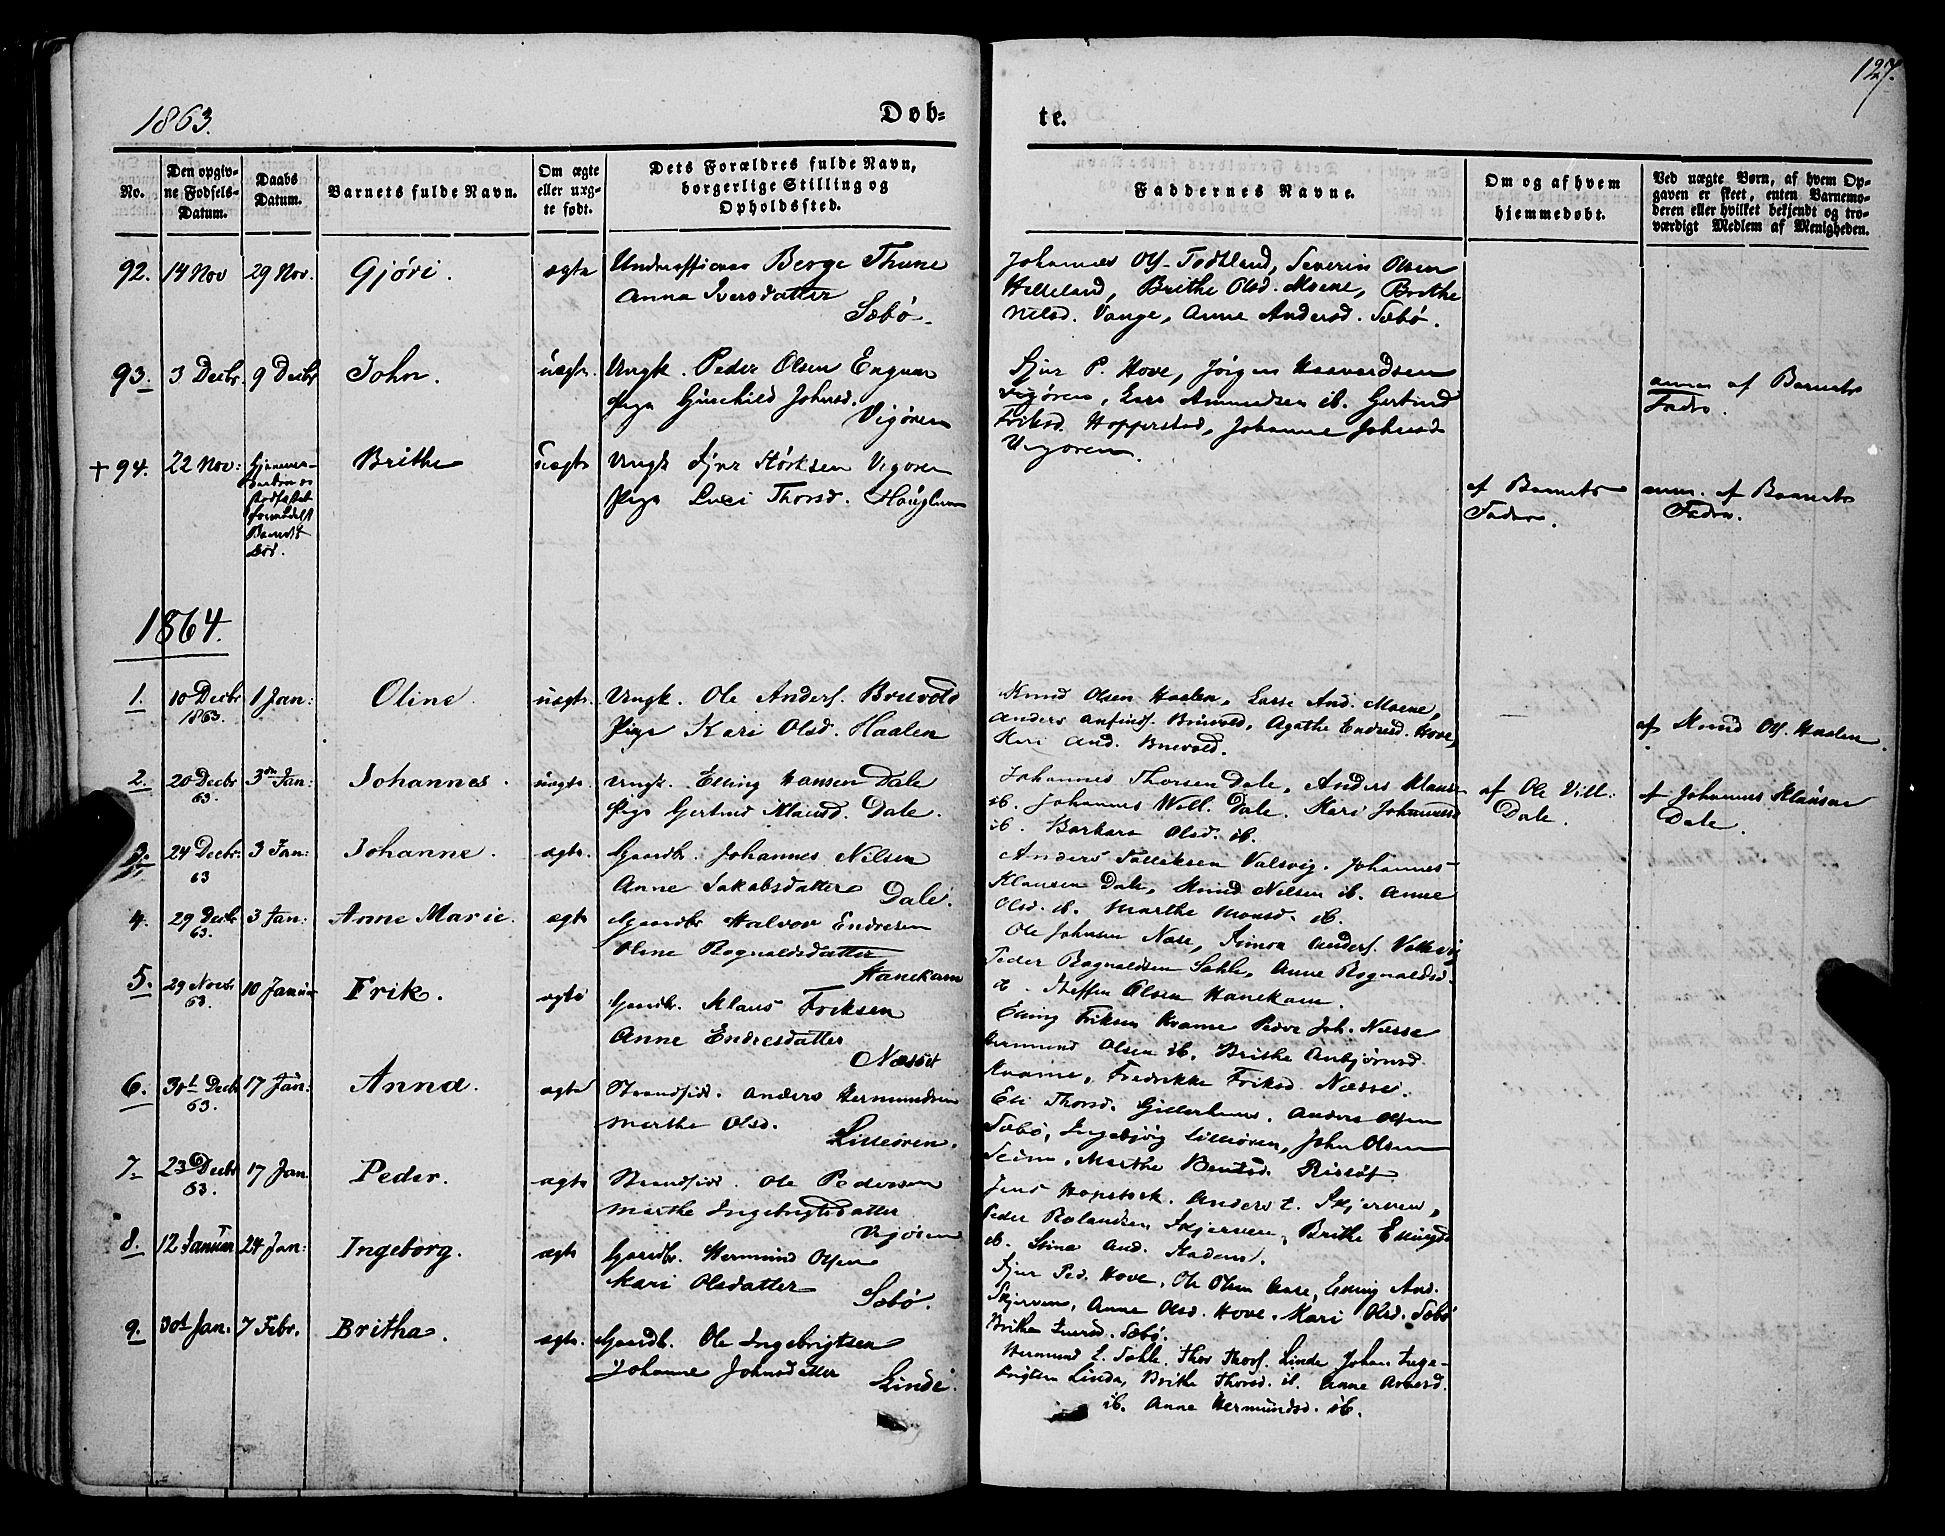 127.
1863.
Døb-
te.
No.
Den opgiv-
ne Fødsels-
Datum.
Daabs
Datum.
Barnets fulde Navn.
Om ægte
eller uæg-
te født.
Dets Forældres fulde Navn,
borgerlige Stilling og
Opholdssted.
Faddernes Navne.
Om og af hvem
hjemmedøbt.
Ved uægte Børn, af hvem Op-
gaven er skeet, enten Barnemo-
deren eller hvilket bekjendt og tro-
værdigt Medlem af Menigheden.
92. 14 Nov 29 Nov. Gjøri. ægte
Berge Thune
Anna Iversdatter
Sæbø.
Johannes Ols. Todtland, Severin Olsen
Helleland, Brithe Olsd. Moene, Brithe
Nilsd. Vange, Anne Andersd. Sæbø.
93. 3 Decbr. 9 Decbr John. uægte.
Ungk. Peder Olsen Engum
Pige Gunhild Johnsd.
Vigøren
Sjur P. Hove, Jørgen Haavardsen
Vigøren, Lars Amundsen ib. Gertrud
Eriksd. Hopperstad, Johanne Johnsd
Vigøren.
anm. af Barnets
Fader.
+ 94. 22 Nov: Brithe uægte
Død.
Ungk Sjur Størksen Vigøren
Pige Luci Thorsd. Hauglum
af Barnets
Fader.
anm. af Barnets
Fader.
1864.
1. 10 Decbr 1 Jan: Oline uægte.
1863.
Ungk. Ole Anders. Bruvold
Pige Kari Olsd. Haalen
Knud Olsen Haalen, Lasse And. Moene,
Anders Anfinds. Bruvold, Agathe Endresd. Hove,
Kari And. Bruvold.
af Knud Ols. Haalen.
2. 20 Decbr 3die Jan: Johannes. uægte.
63.
Ungk. Elling Hansen Dale
Pige Gertrud Dale.
Johannes Thorsen Dale, Anders Klaus
ib. Johannes Will. Dale. Kari Johannesd
ib. Barbara Olsd. ib.
af Ole Will.
Dale.
af Johannes Klausen
Dale.
3. 24 Decbr: 3 Jan: Johanne. ægte.
63
Gaardbr. Johannes Nilsen
Anne Jakobsdatter
Dale.
Anders Valsvig. Johannes
Klausen Dale, Knud Nilsen ib. Anne
Olsd. ib. Marthe Monsd. ib.
4. 29 Decbr 3 Jan: Anne Marie. ægte
63.
Gaardbr Halvor Endresen
Oline Rognaldsdatter
Hanekam
Ole Johnsen Nese, Simon Anders.
Peder Rognaldsen Sahle, Anne Rognaldsd.
ib. Steffen Olsen Hanekam.
5. 29 Novbr 10 Januar Erik. ægte
63.
Gaardbr. Klaus Eriksen
Anne Endresdatter
Næsset
Elling Eriksen Kvame Peder Joh. Næsse
Hermund Olsen ib. Brithe Anbjørnsd
Kvame, Fredrikke Eriksd. Næsse.
6. 30t Decbr 17 Jan: Anna. ægte
63.
Strandsidd. Anders Hermundsen
Marthe Olsd.
Lilleøren.
Eli Thorsd. Anders Olsen
Sæbø, Ingebjørg Lilleøren, John Olsen
Seim, Marthe Bentsd.
7. 23 Decbr 17 Jan Peder. ægte
63.
Strandsidd. Ole Pedersen
Marthe Ingebrigtsdatter
Vigøren
Jens Hopstock. Anders t. Skjerven,
Peder Rolandsen Skjerven, Brithe Ellingsd
ib. Stina And.
8. 12 Januar 24 Jan: Ingeborg. ægte
Gaardbr. Hermund Olsen
Kari Olsdatter
Sæbø.
Sjur Ped. Hove, Ole Olsen Aase, Elling And.
Skjerven, Anne Olsd. Hove. Kari Olsd. Sæbø
Brithe Iversd. Sæbø.
9. 30t Jan. 7 Febr. Britha. ægte.
Gaardb. Ole Ingebrigtsen
Johanne Johnsdatter
Linde.
Hermund E. Sahle. Thor Thors. Linde Johan Inge-
brigtsen Linde, Brithe Thorsd. ib. Anne
ib. Anne Hermundsd. ib.